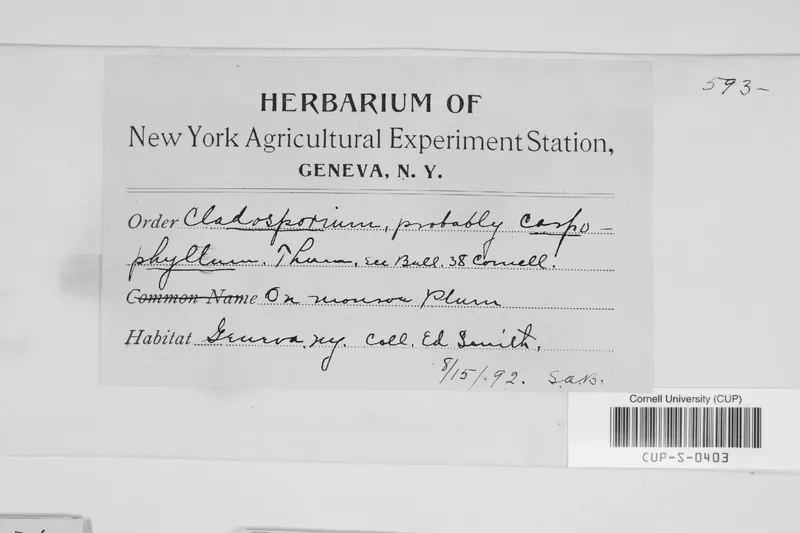 593-
HERBARIUM OF
New York Agricultural Experiment Station,
GENEVA, N. Y.
Order Cladosporium, probably carpo-
phyllum. Thum, see Bull. 38 Cornell.
Common Name On monson Plum
Habitat Geneva, ny. Coll. Ed Smith.
8/15/.92. S.A.B.
Cornell University (CUP)
CUP-S-0403